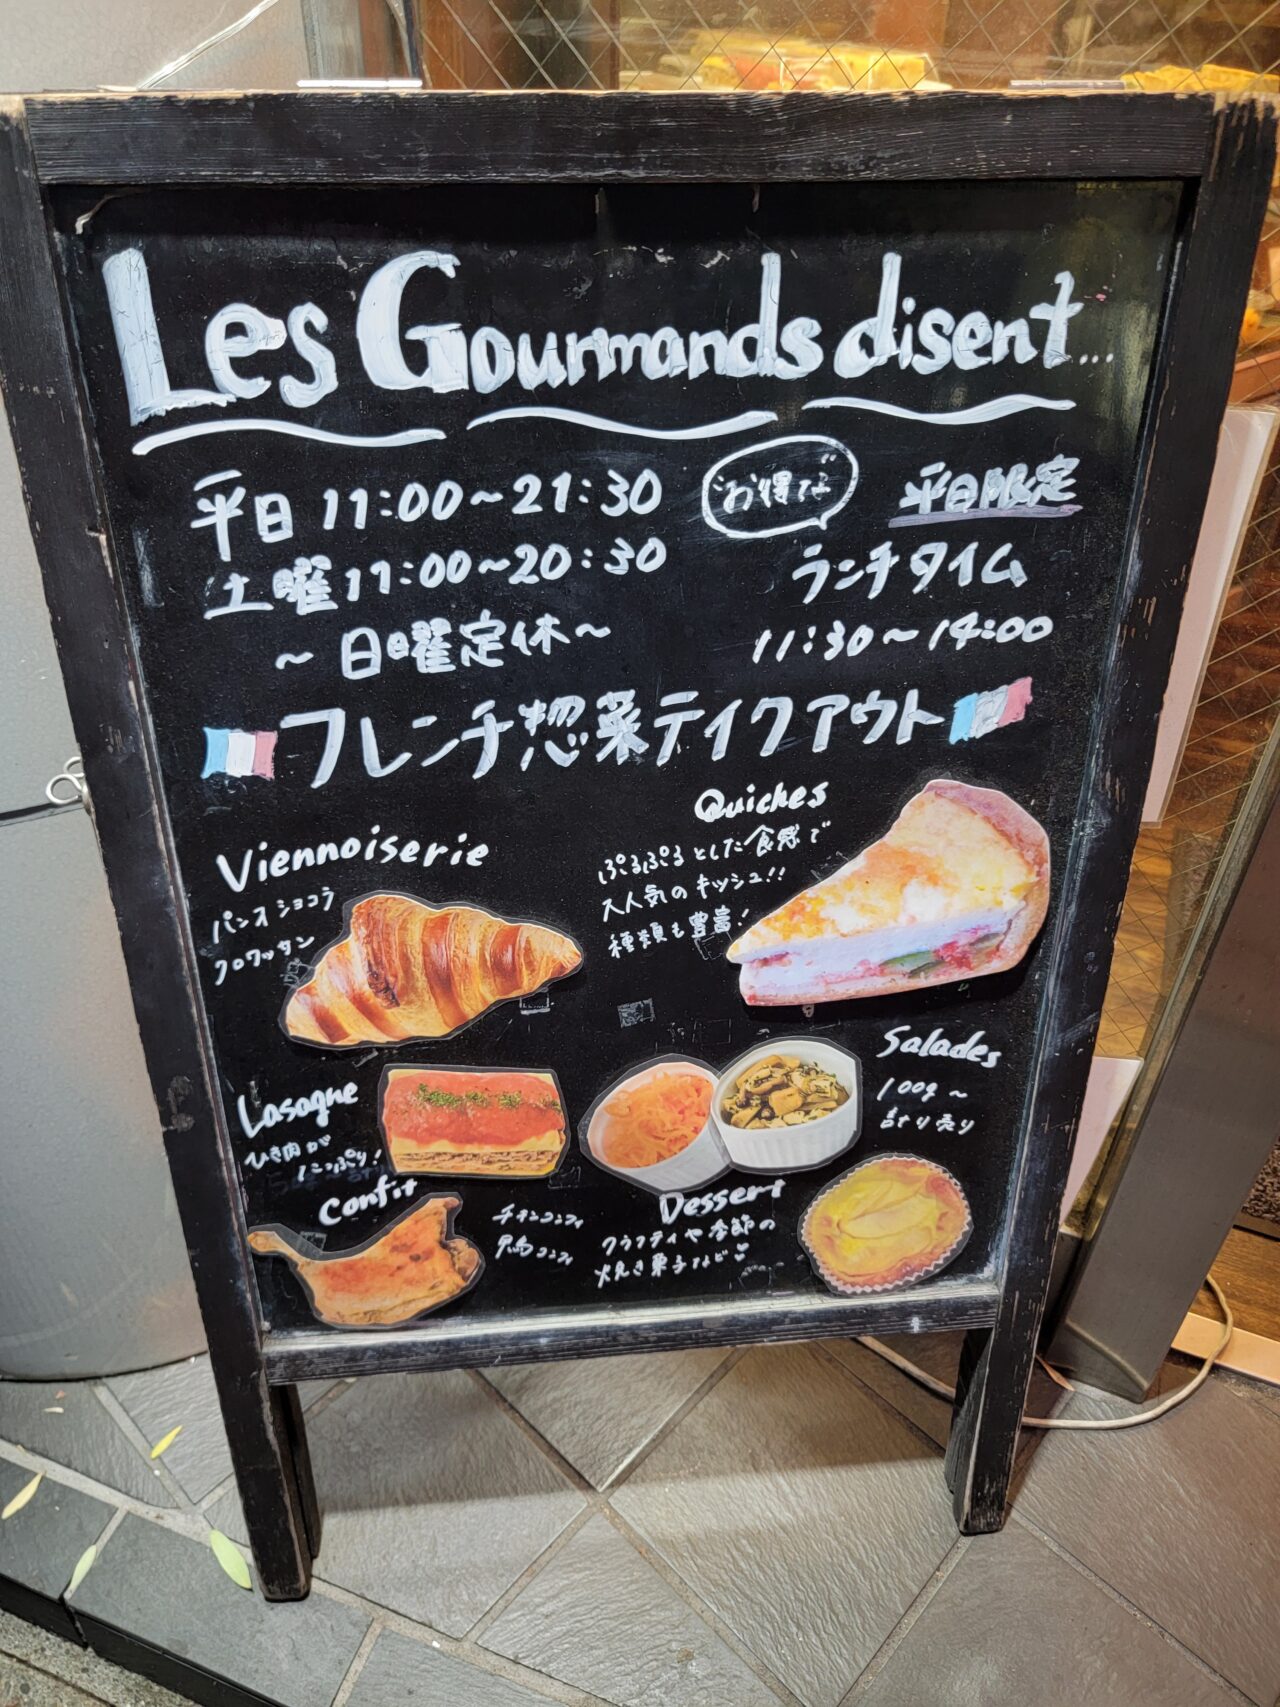 Les Gourmands disent...
平日 11:00～21:30
土曜 11:00～20:30
～日曜定休～
お得な
平日限定
ランチタイム
11:30～14:00
フレンチ惣菜テイクアウト
Viennoiserie
パンオショコラ
クロワッサン
Quiches
ぷるぷるとした食感で
大人気のキッシュ!!
種類も豊富!
Lasagne
ひき肉が
たっぷり!
Salades
100g～
計り売り
Confit
チキンコンフィ
鴨コンフィ
Dessert
クラフティや季節の
焼き菓子など♡